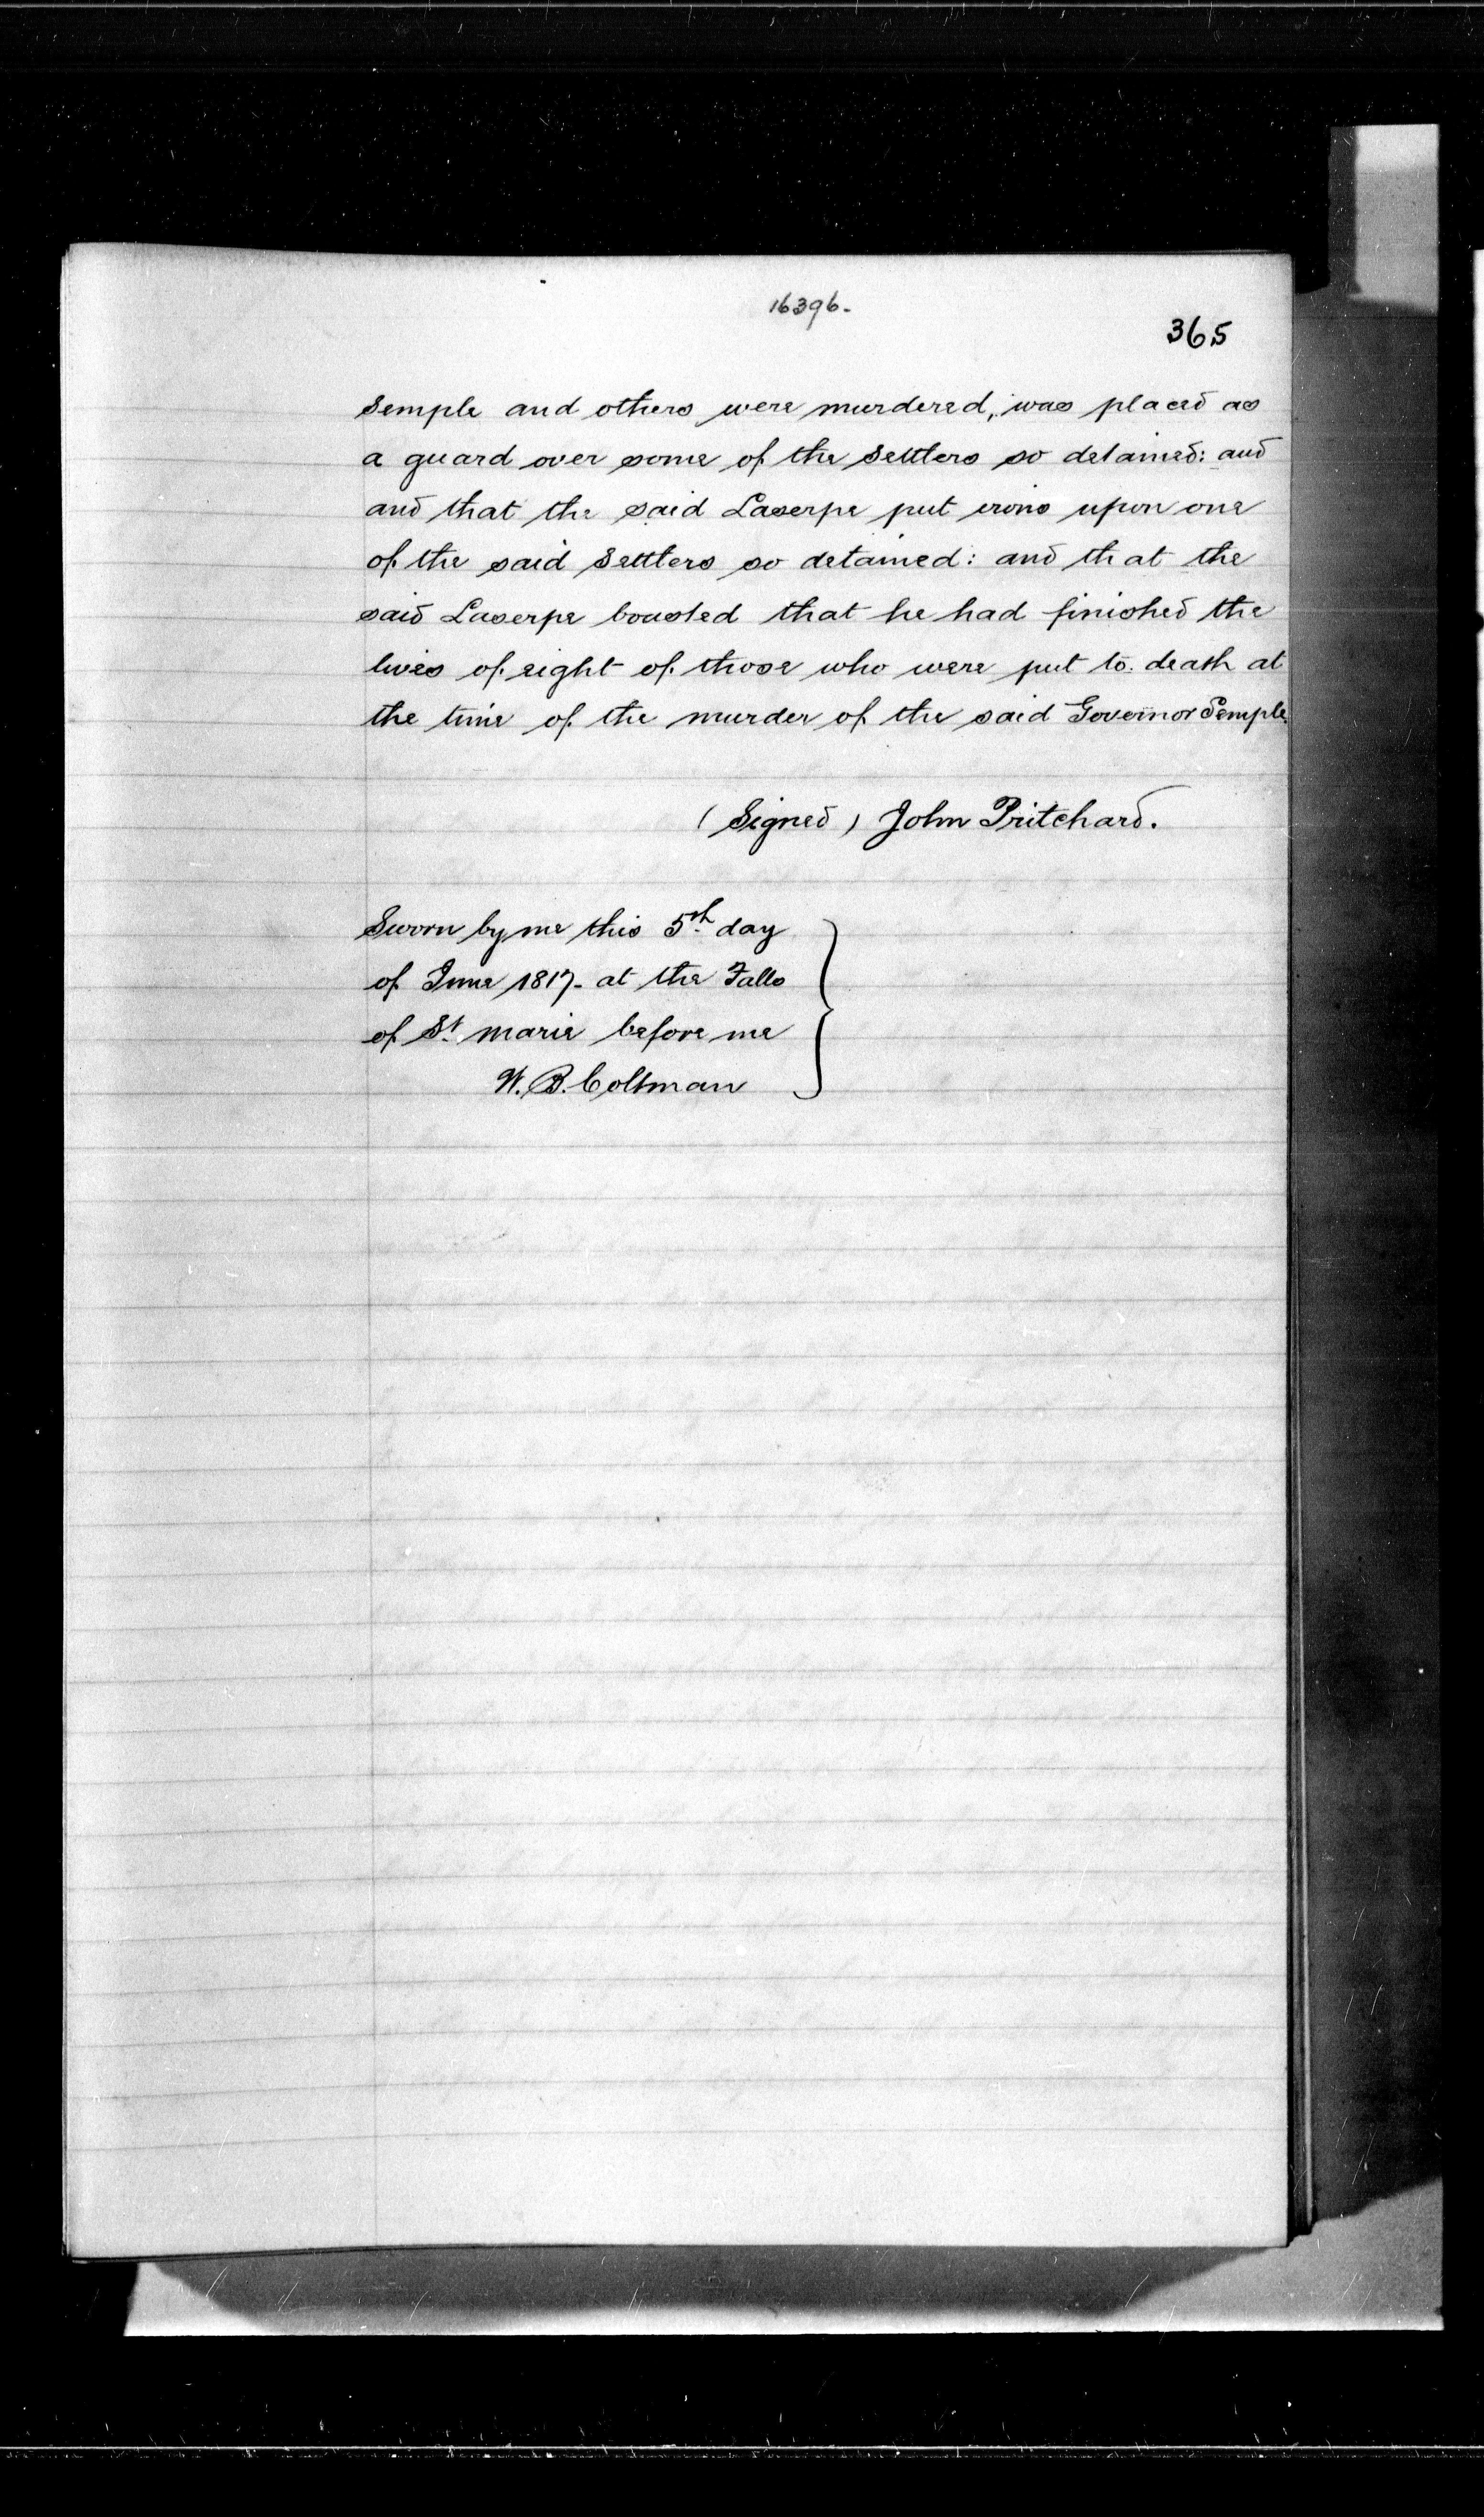 16396.
365
Semple and others were murdered, was placed as
a guard over some of the Settlers so detained: and
and that the said Laserpe put irons upon one
of the said Settlers so detained: and that the
said Laserpe boasted that he had finished the
lives of eight of those who were put to death at
the time of the murder of the said Governor Semple.
(Signed) John Pritchard.
Sworn by me this 5th day
of June 1817. at the Falls
of St. Marie before me
W. B. Coltman